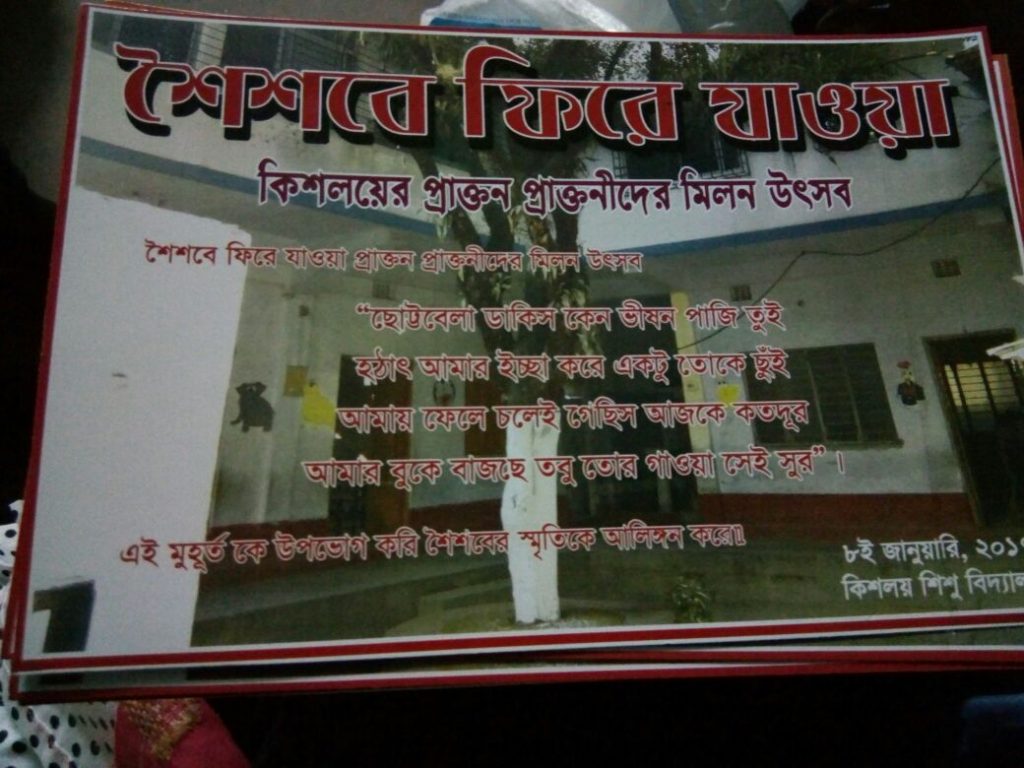 শৈশবে ফিরে যাওয়া
কিশলয়ের প্রাক্তন প্রাক্তনীদের মিলন উৎসব
শৈশবে ফিরে যাওয়া প্রাক্তন প্রাক্তনীদের মিলন উৎসব
“ছোট্টবেলা ডাকিস কেন ভীষন পাজি তুই
হঠাৎ আমার ইচ্ছা করে একটু তোকে ছুঁই
আমায় ফেলে চলেই গেছিস আজকে কতদূর
আমার বুকে বাজছে তবু তোর গাওয়া সেই সুর” ।
এই মুহূর্ত কে উপভোগ করি শৈশবের স্মৃতিকে আলিঙ্গন করে॥
৮ই জানুয়ারি,
কিশলয় শিশু